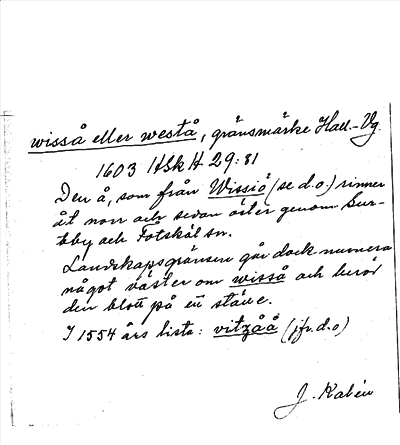 wisså eller westå, gränsmärke Hall.-Vg.
1603 HSk H 29:81
Den å, som från Wissiö (se d.o.) rinner
åt norr och sedan öster genom Sur-
teby och Fotskäl sn.
Landskapsgränsen går dock numera
något väster om wisså och berör
den blott på ett ställe.
I 1554 års lista: vitzåå (jfr. d.o)
J. Kalén